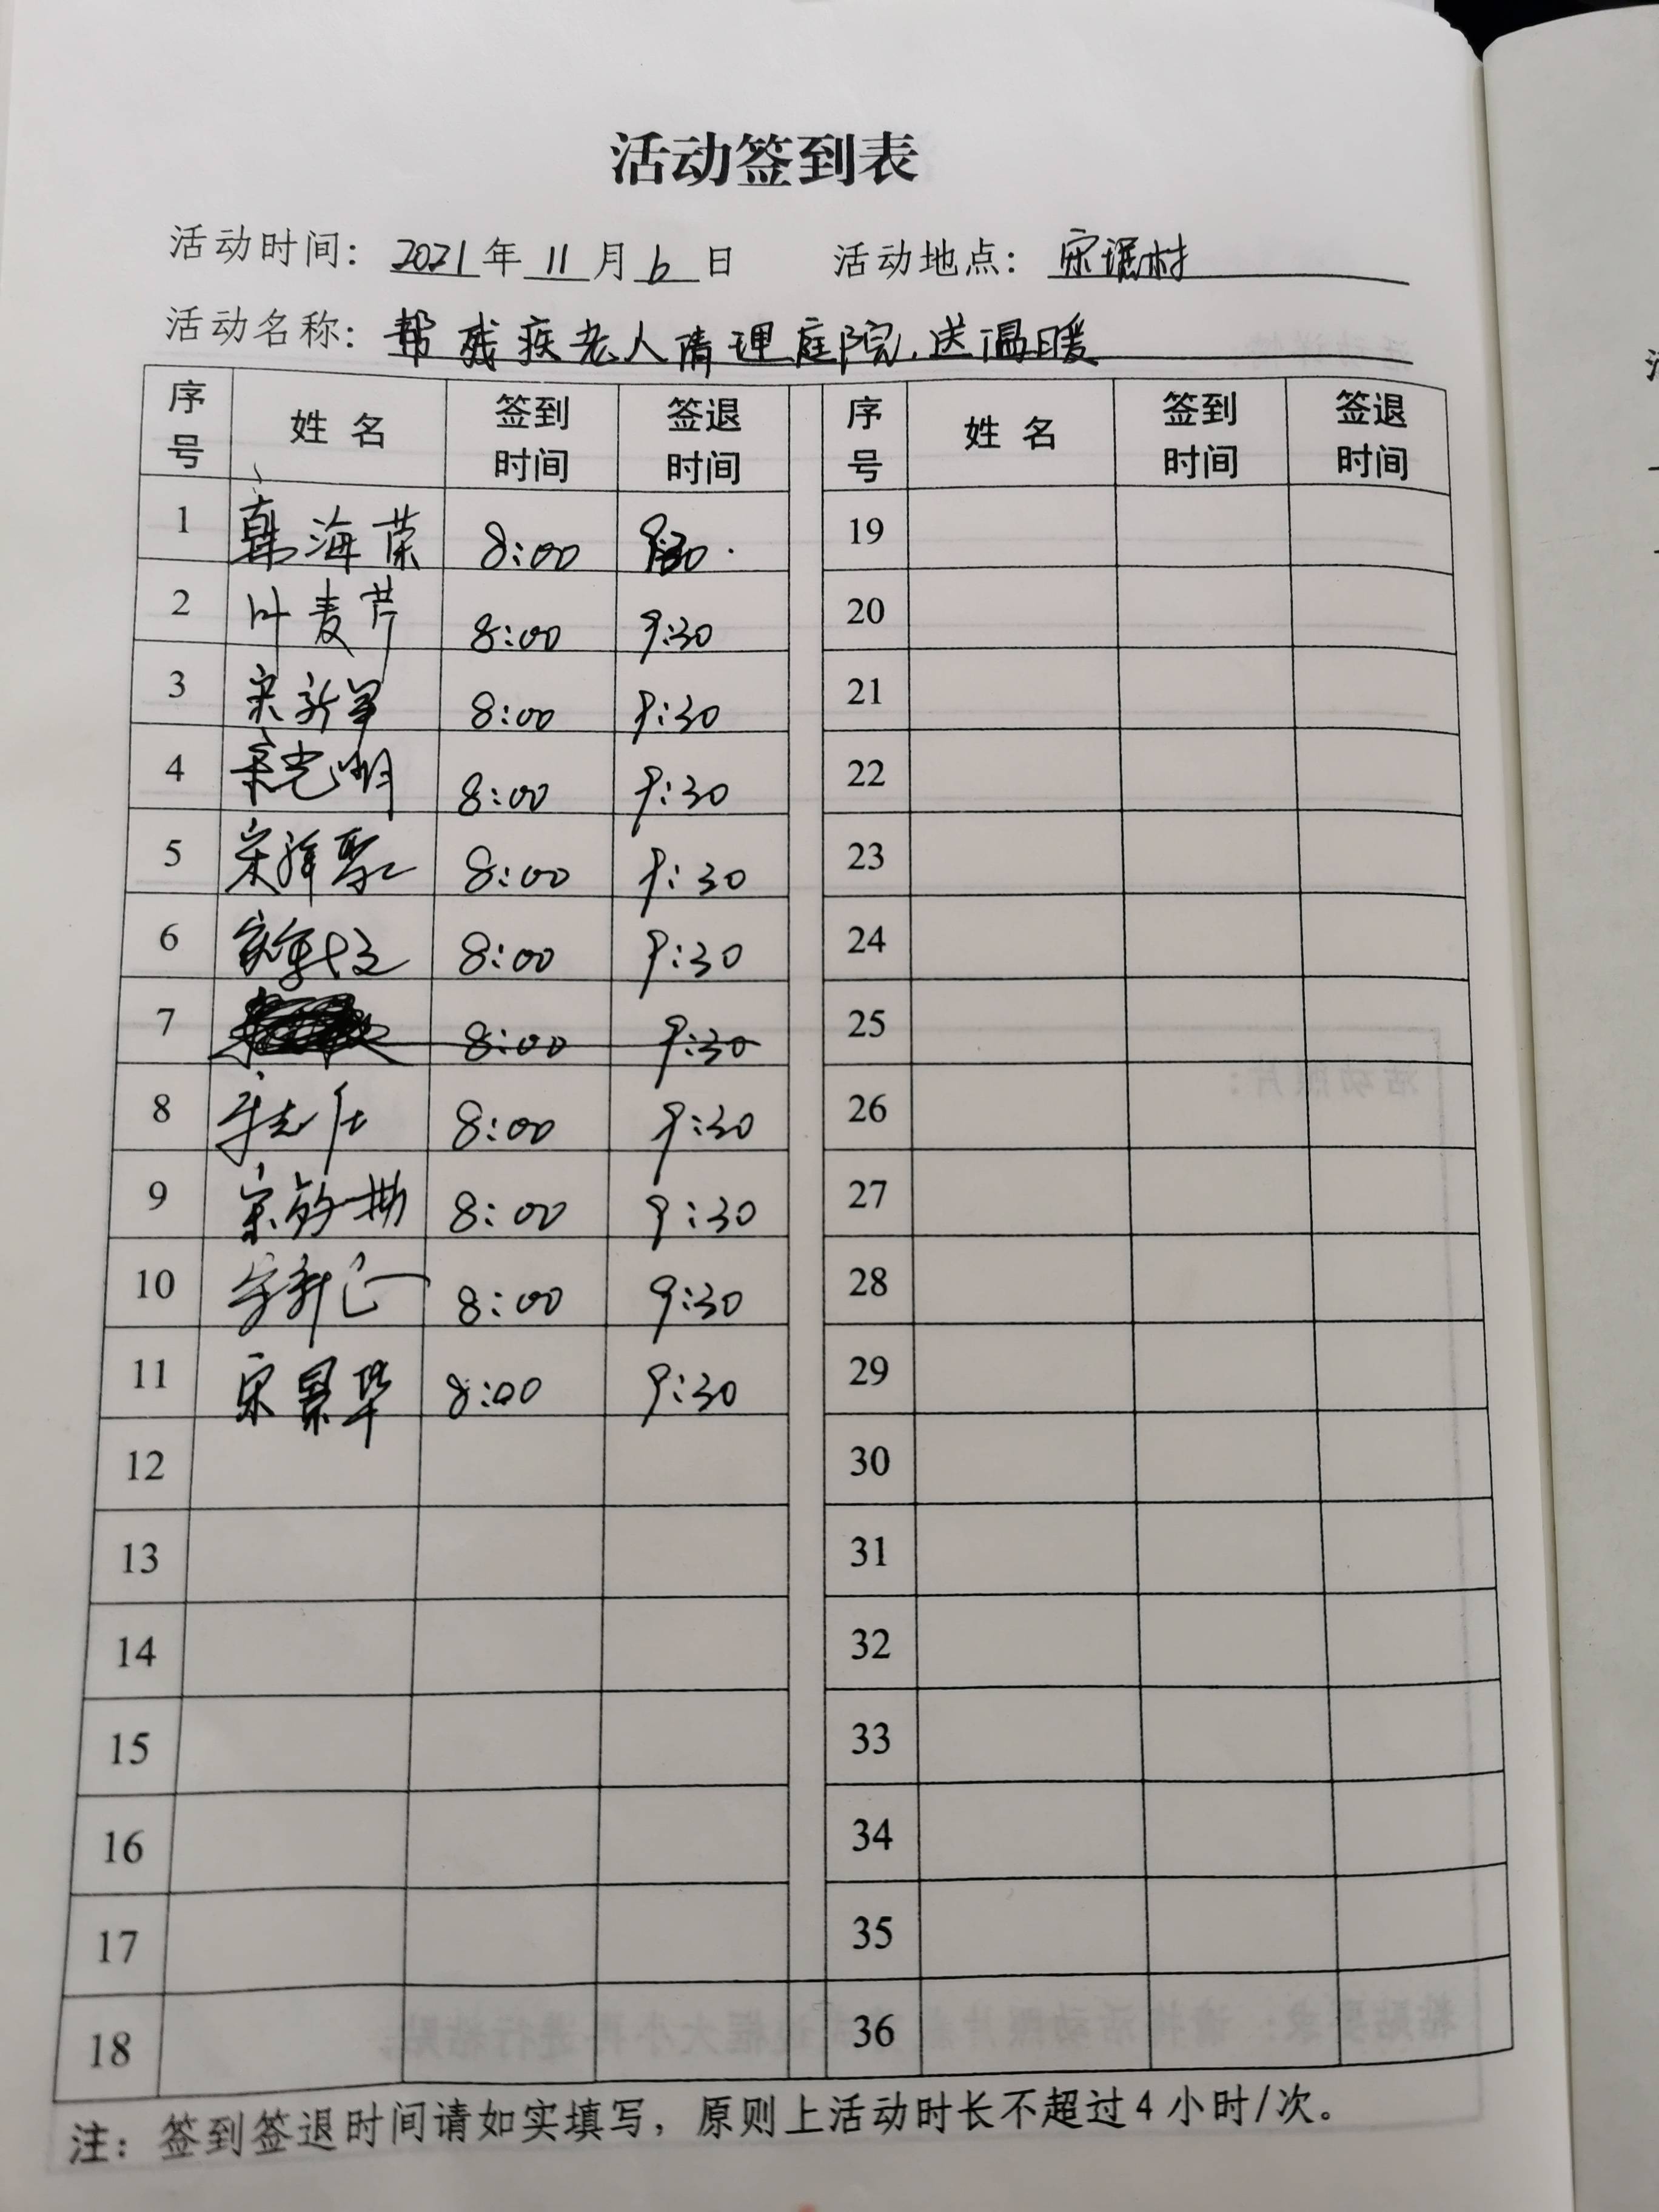 活动签到表
活动时间：2021年11月6日 活动地点：宋 村
活动名称：帮残疾老人清理庭院，送温暖
序号 姓名 签到时间 签退时间 序号 姓名 签到时间 签退时间
1 韩海荣 8:00 9:30 19
2 叶麦芹 8:00 9:30 20
3 宋新军 8:00 9:30 21
4 宋光明 8:00 9:30 22
5 宋 8:00 9:30 23
6 宋 8:00 9:30 24
7 8:00 9:30 25
8 8:00 9:30 26
9 宋 8:00 9:30 27
10 8:00 9:30 28
11 宋景华 8:00 9:30 29
12 30
13 31
14 32
15 33
16 34
17 35
18 36
注：签到签退时间请如实填写，原则上活动时长不超过4小时/次。